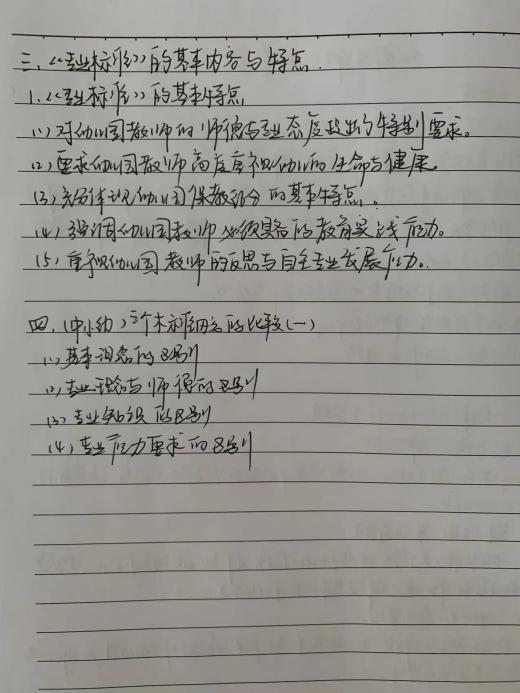 三、《专业标准》的基本内容与特点.
1.《专业标准》的基本特点
(1) 对幼儿园教师的师德与专业态度提出的特别要求。
(2) 要求幼儿园教师高度重视幼儿的生命与健康。
(3) 充分体现幼儿园保教结合的基本特点。
(4) 强调幼儿园教师必须具备的教育实践能力。
(5) 重视幼儿园教师的反思与自主专业发展能力。
四、(中小幼)三个标准内容的比较(一)
(1) 基本理念的区别
(2) 专业理念与师德的区别
(3) 专业知识的区别
(4) 专业能力要求的区别